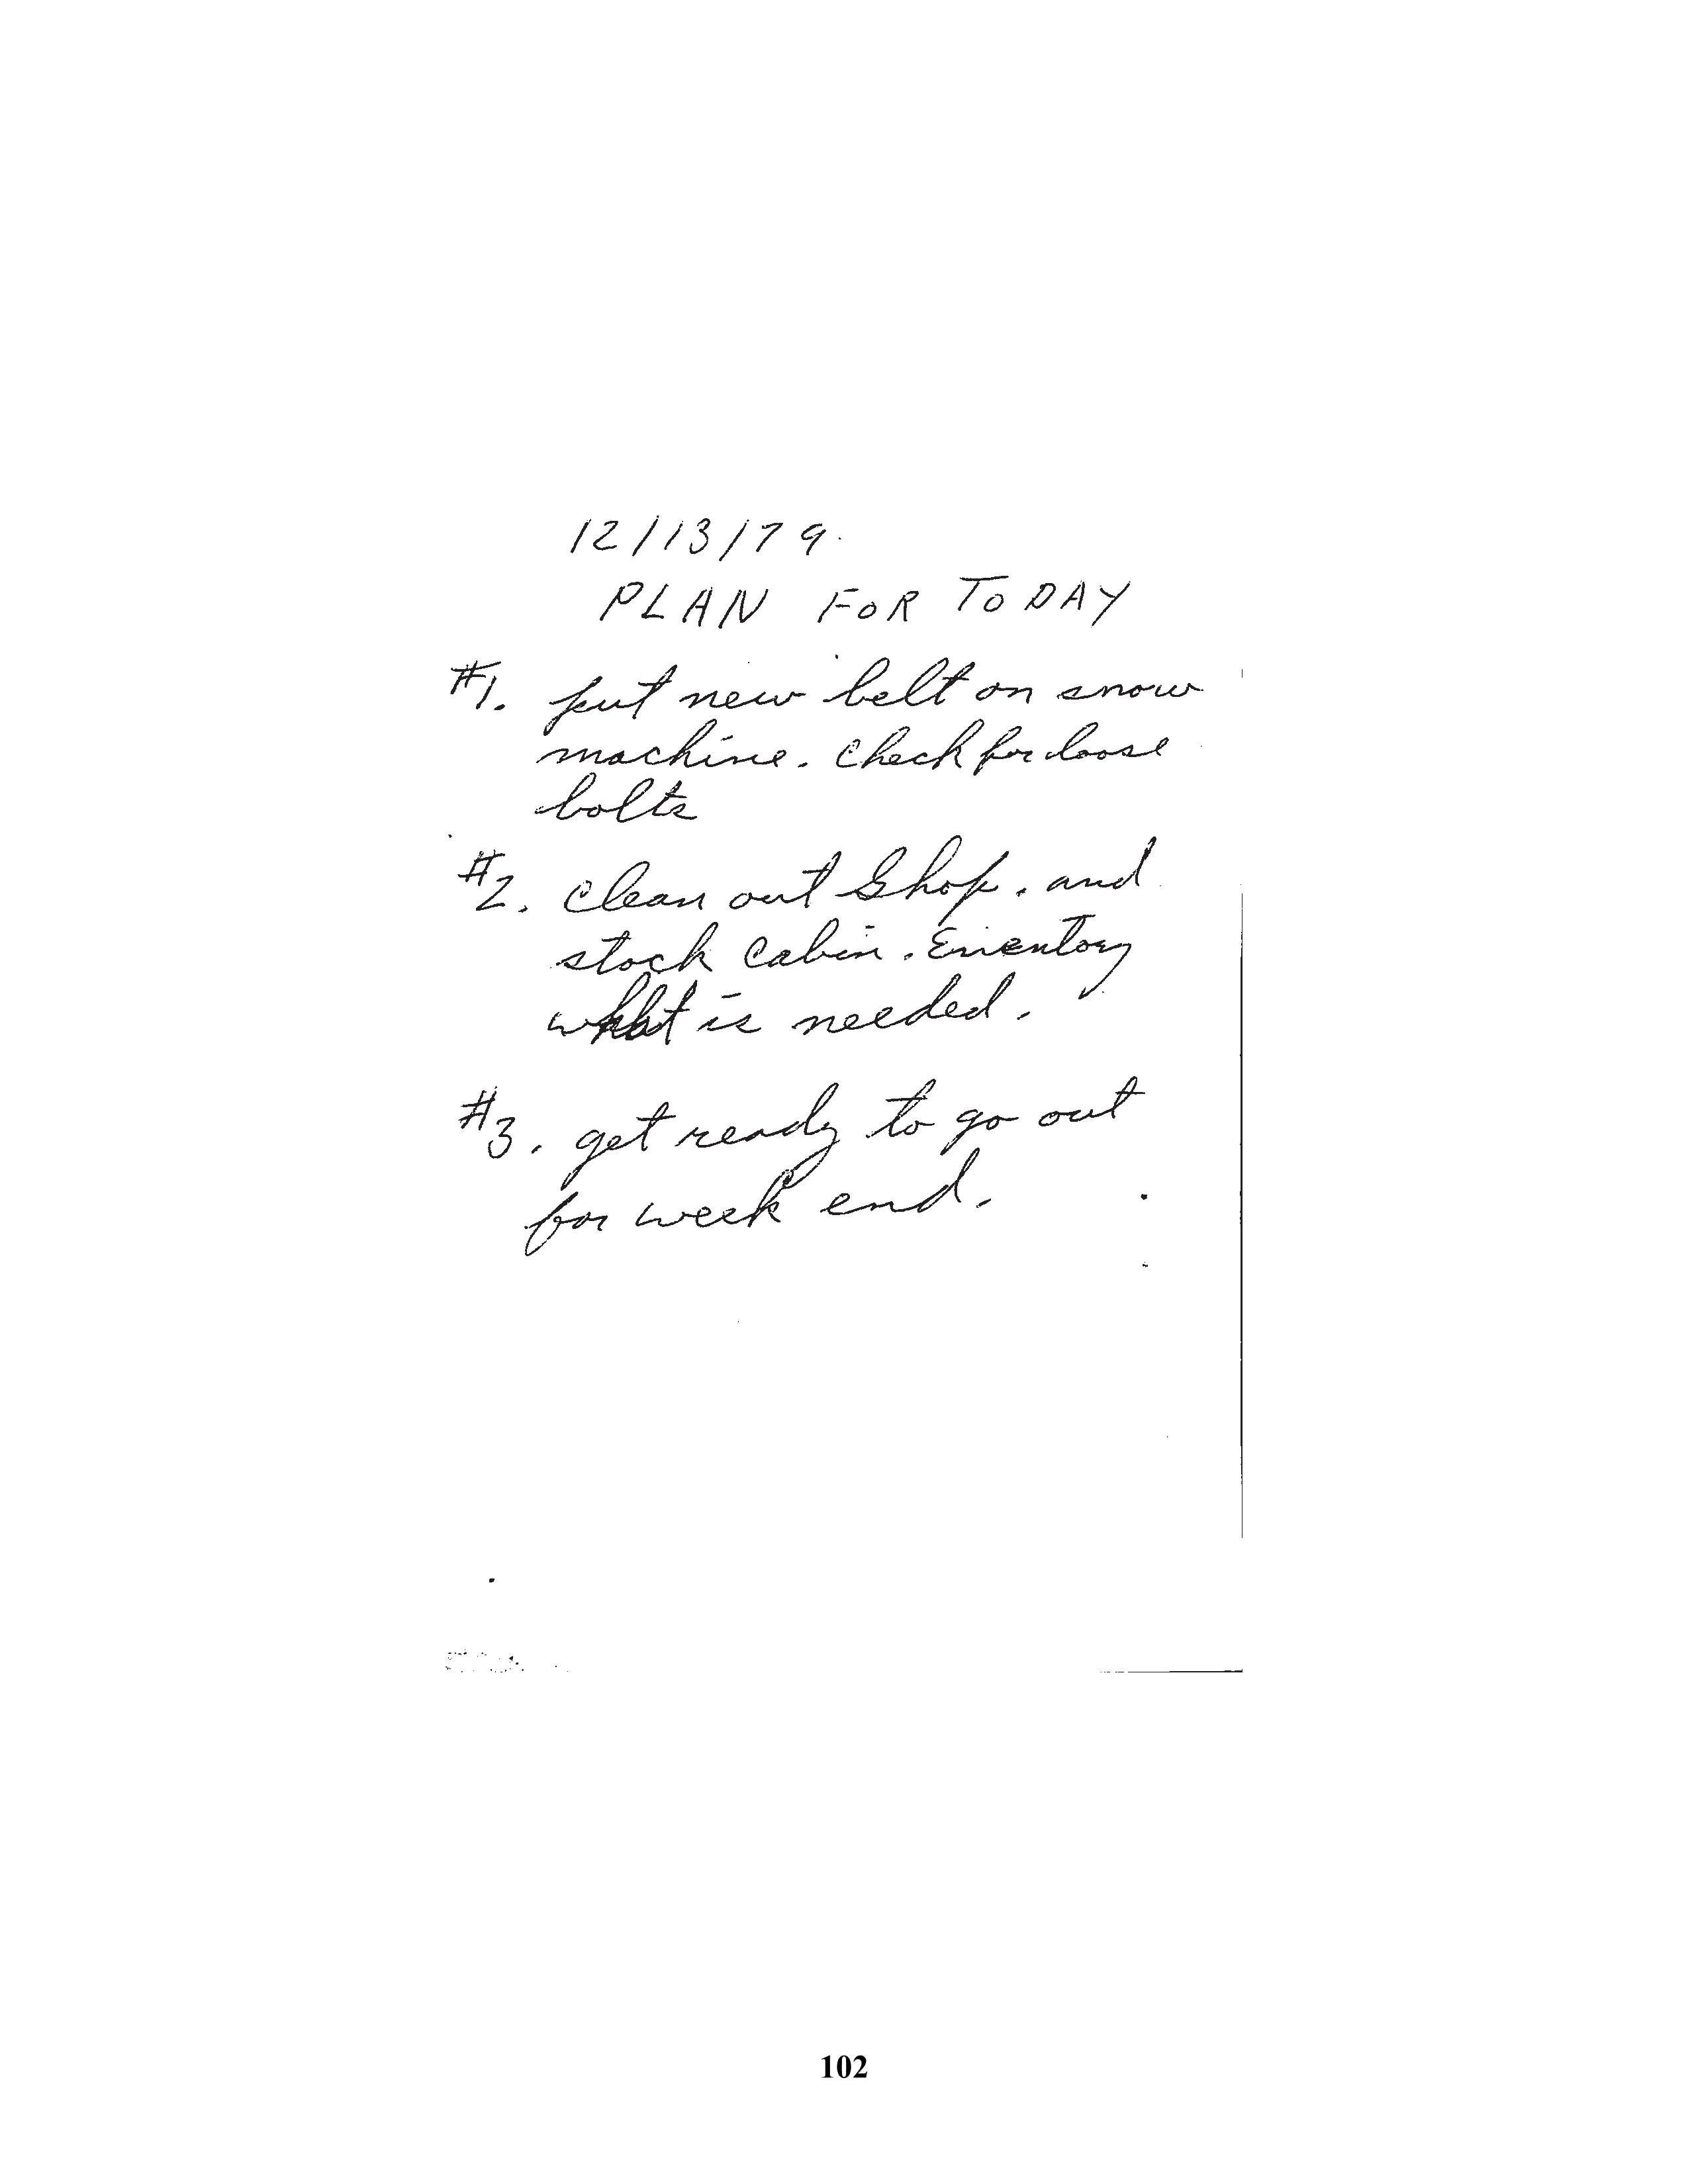 12/13/79.
PLAN FOR TODAY
#1. put new belt on snow
machine. Check for loose
bolts
#2. Clean out Shop. and
stock Cabin. Enventory
what is needed.
#3. get ready to go out
for week end.
102